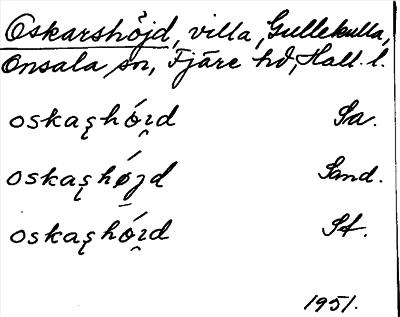 Oskarshöjd, villa, Gullekulla,
Onsala sn, Fjäre hd, Hall. l.
oskaʂhǿɪ̯d Sa.
oskaʂhǿjd Sand.
oskaʂhǿɪ̯d St.
1951.